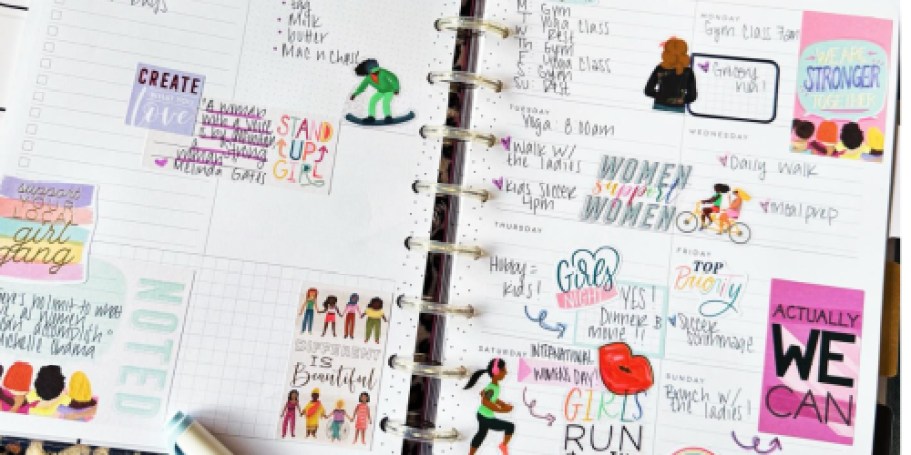 Milk
butter
CREATE
WHAT YOU
love
"A woman
with a voice
is by definition
a strong
woman"
Melinda Gates
STAND
UP
GIRL
support
YOUR
LOCAL
girl
gang
NOTED
Michelle Obama
DIFFERENT
IS
Beautiful
M Gym
T Yoga class
W Rest
Th Gym
F Yoga class
S Gym
Su Rest
MONDAY
Gym class 7am
Grocery
run!
WE ARE
STRONGER
TOGETHER
TUESDAY
Yoga 8:00am
Walk w/
the ladies
Kids Soccer
4pm
WOMEN
support
WOMEN
WEDNESDAY
Daisy walk
Meal prep
THURSDAY
Hubby =
kids!
Girls
NIGHT
YES!
Dinner &
movie!!
FRIDAY
TOP
Priority
Soccer
scrimmage
ACTUALLY
WE
CAN
SATURDAY
INTERNATIONAL
WOMEN'S DAY!
GIRLS
RUN
SUNDAY
Brunch w/
the ladies!